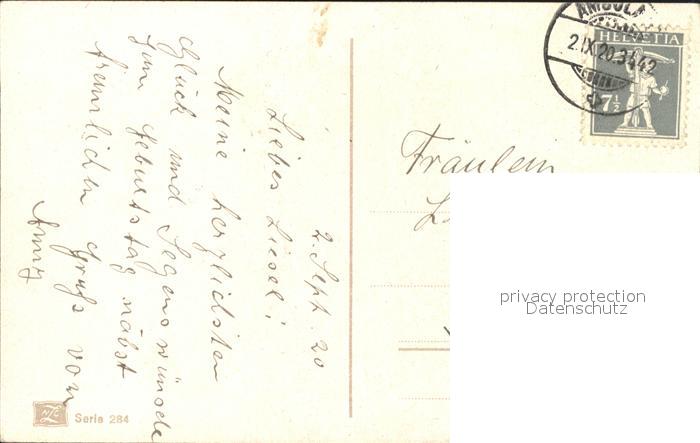 2. Sept. 20
Liebes Liesel!
Meine herzlichsten
Glück und Segenswünsche
zum Geburtstag näbst
freundlichen Gruss von
Fräulein
HELVETIA
2.IX.20.
7½
Serie 284
privacy protection
Datenschutz